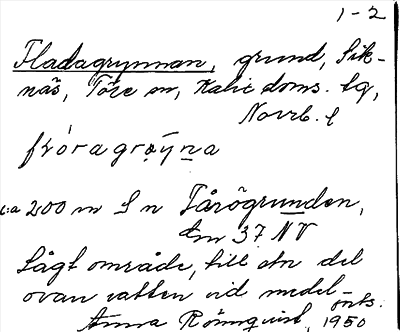 1-2
Fladagrynnan, grund, Sik-
näs, Töre sn, Kalix doms. lg,
Norrb. l
c:a 200 m S n Fårögrunden,
Em 37 NV
Lågt område, till stn del
ovan vatten vid medel-
Anna Rönnqvist, 1950